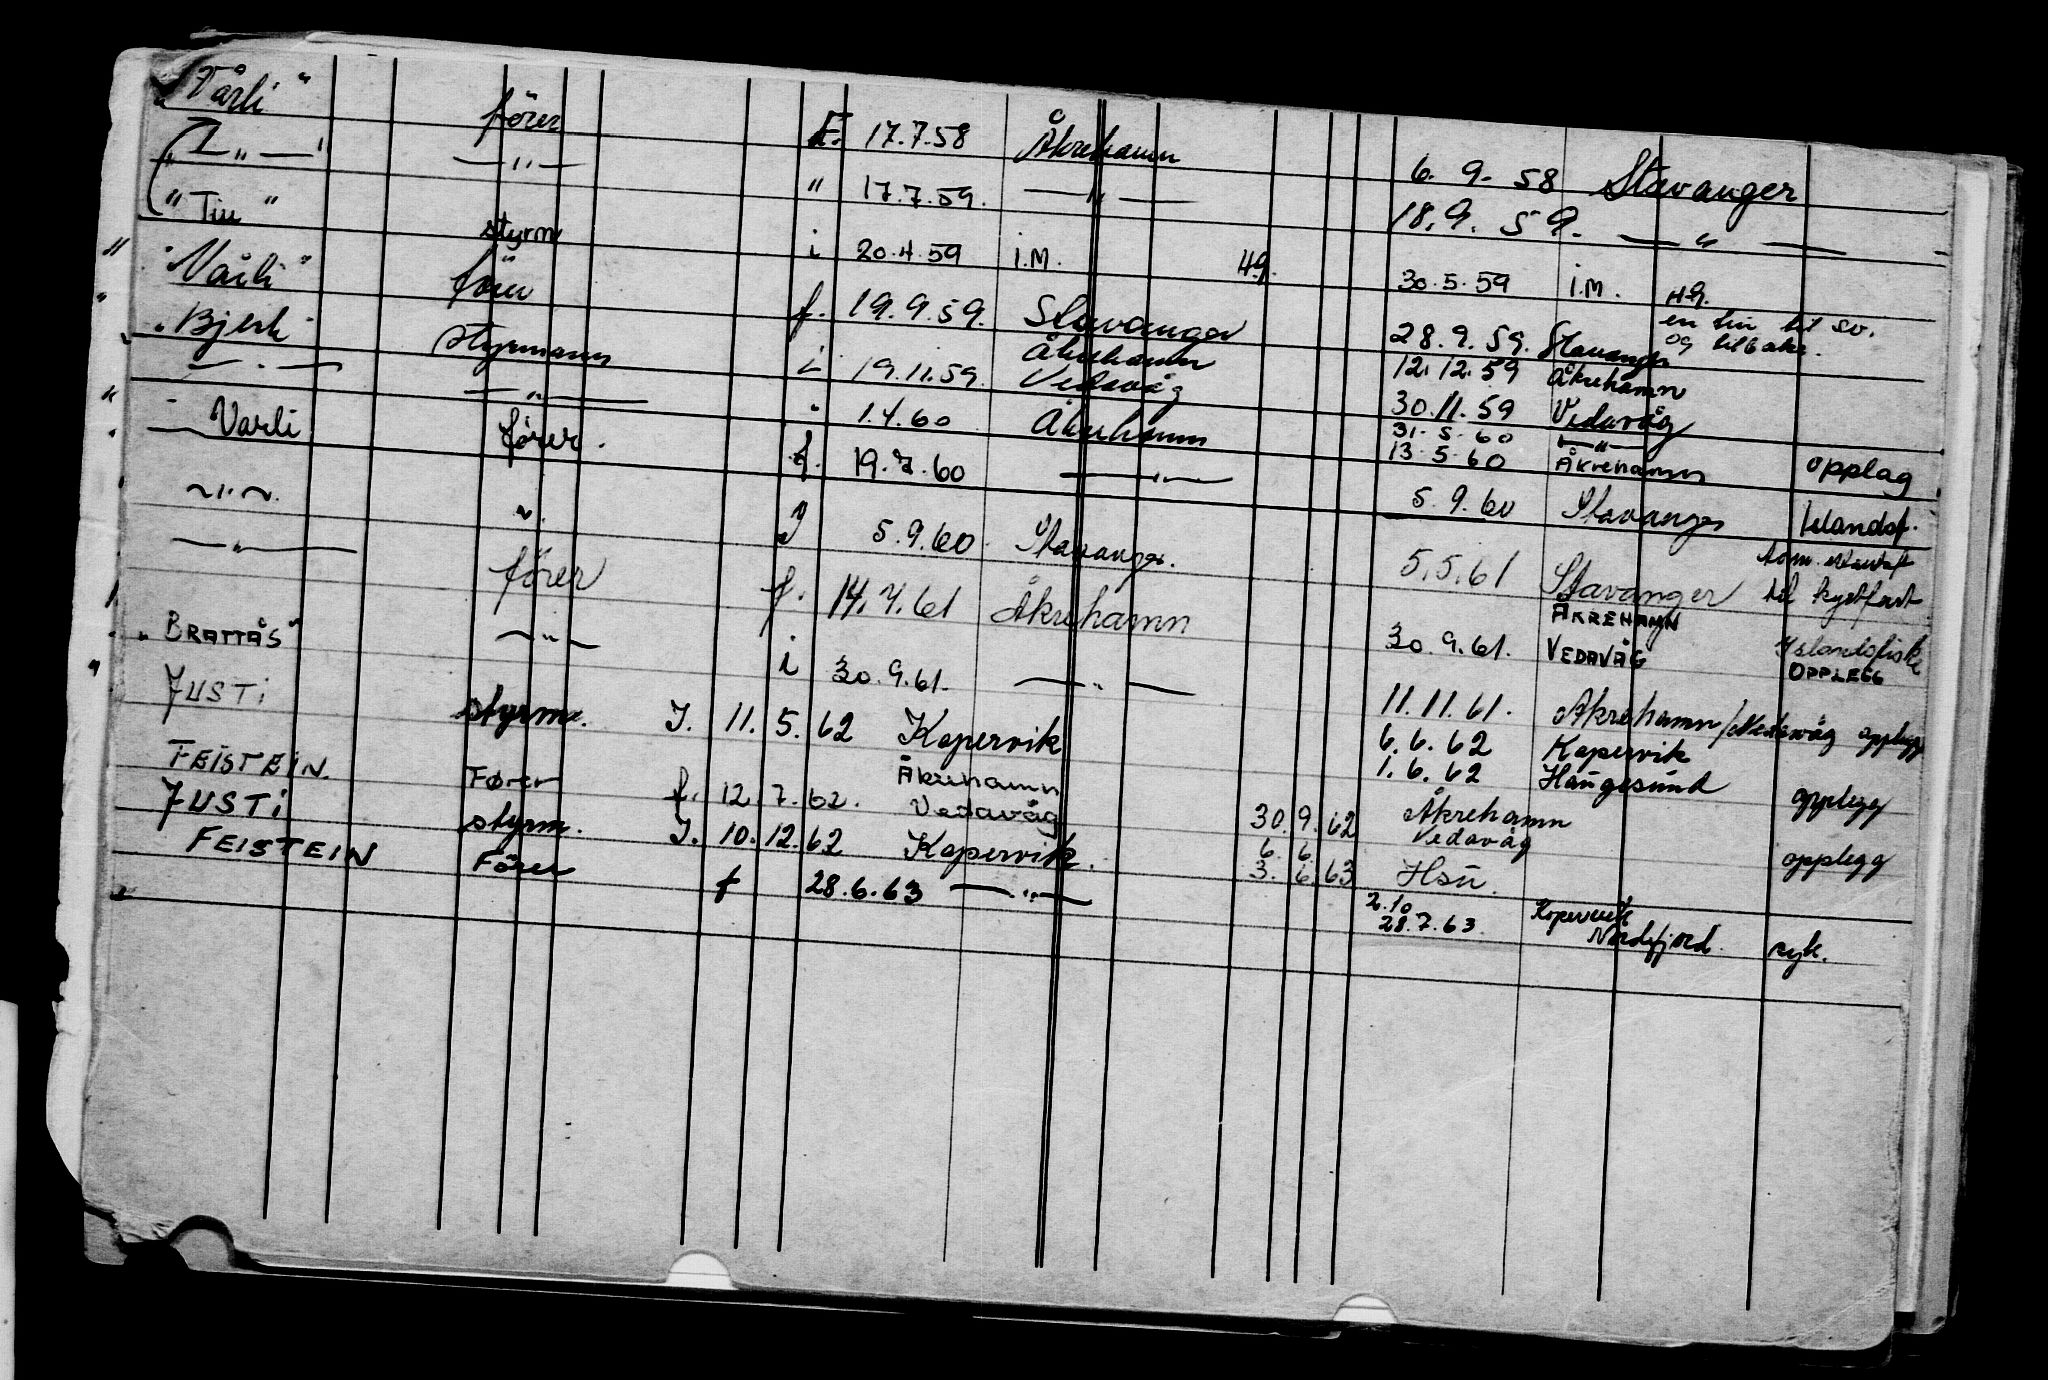 "Vårli" förer F. 17.7.58 Åkrehamn 6. 9. 58 Stavanger
" — " — — " — " 17.7.59. — " — 18. 9. 59. — " —
" Tiu " styrm i 20.4.59 i.M. 49. 30.5.59 i.M. 49.
"Vårli" förer f. 19.9.59. Stavanger 28.9.59. Stavanger en tur til sv. og tilbake.
"Bjerk" styrmann i 19.11.59. Åkrehamn Vedavåg 12.12.59 Åkrehamn
30.11.59 Vedavåg
— " — — " — " 1.4.60 Åkrehamn 31.5.60 — " —
13.5.60 Åkrehamn opplag
" Varli förer. f. 19.7.60 — " — 5.9.60 Stavanger Islandsf.
— " — " J 5.9.60 Stavanger. 5.5.61 Stavanger til kystfart
— " — förer f. 14.7.61 Åkrehamn 30.9.61. ÅKREHAMN VEDAVÅG Islandsfiske OPPLEGG
"BRATTÅS" — " — i 30.9.61. — " — 11.11.61. Åkrehamn/Vedavåg opplegg
JUSTi styrm. J. 11. 5. 62 Kopervik 6.6.62 Kopervik
1.6.62 Haugesund opplegg
FEISTEIN. Fører f. 12. 7. 62. Åkrehamn Vedavåg 30. 9. 62 Åkrehamn Vedavåg
JUSTi styrm. J. 10. 12. 62 Kopervik. 6. 6.
3. 6. 63 Hsu. opplegg
FEISTEIN Förer f 28.6.63 — " — 2.10 Kopervik
28.7.63. Nordfjord. syk.